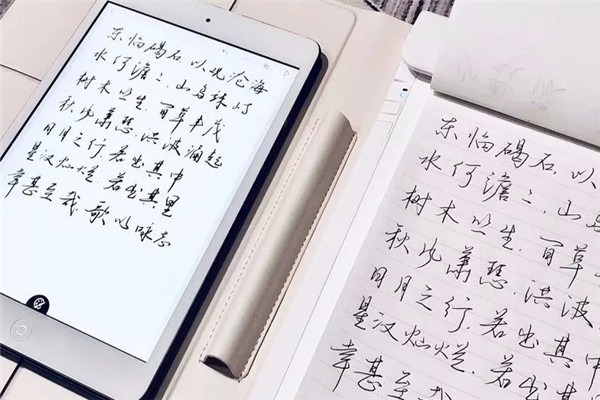 东临碣石 以观沧海
水何澹々,山岛竦峙
树木丛生,百草丰茂
秋风萧瑟,洪波涌起
日月之行,若出其中
星汉灿烂,若出其里
幸甚至哉,歌以咏志
东临碣石,以
水何澹々,山岛
树木丛生,百草
秋风萧瑟,洪波
日月之行,若出其中
星汉灿烂,若出其
幸甚至哉